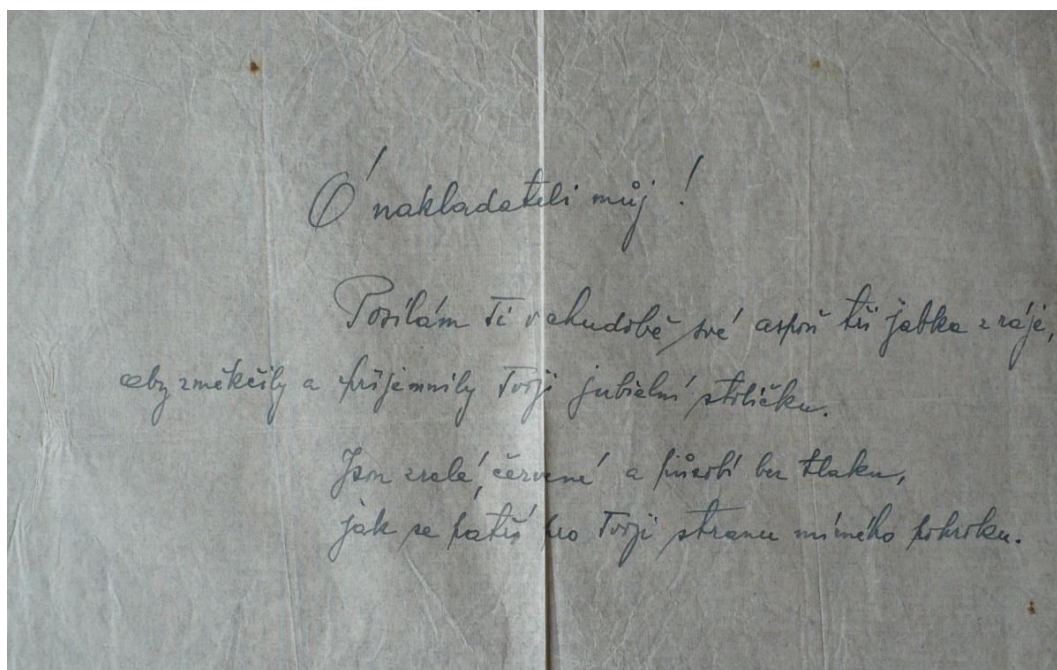 Ó nakladateli můj!
Posílám Ti v chudobě své aspoň tři jabka z ráje,
aby změkčily a příjemnily Tvoji jubielní stoličku.
Jsou zralé, červené a působí bez tlaku,
jak se patří pro Tvoji stranu mírného pokroku.